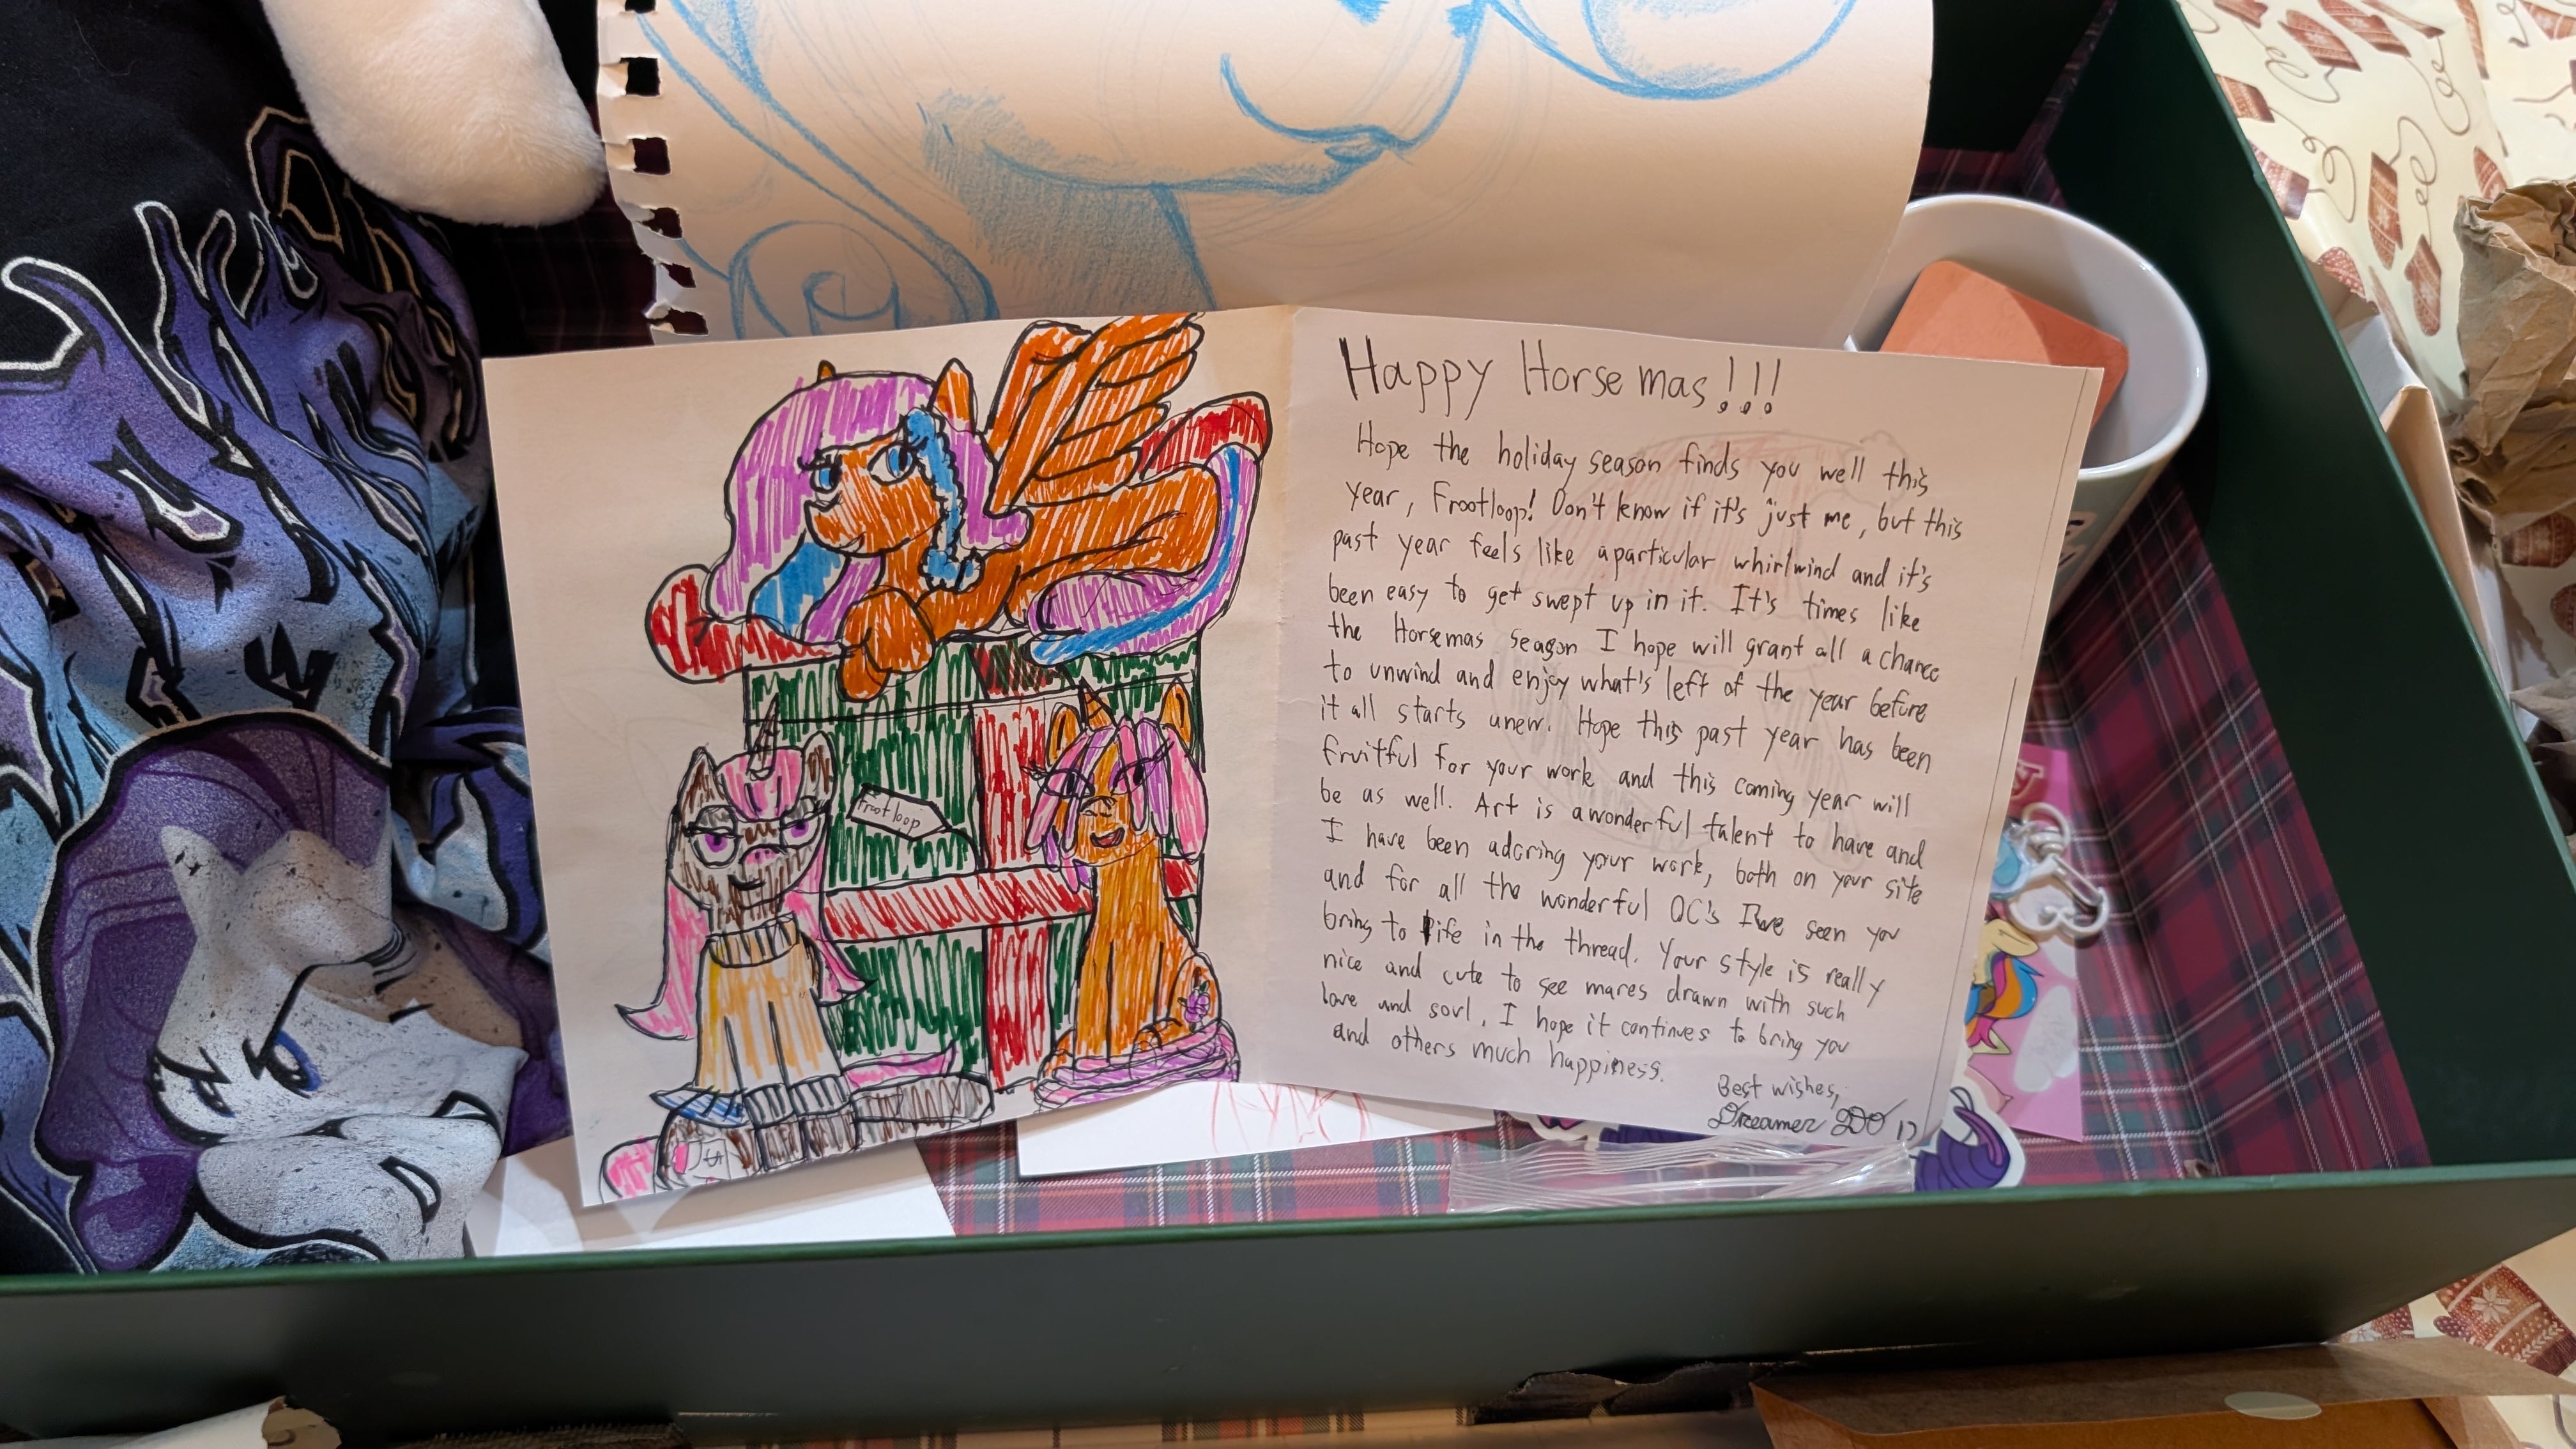 Frootloop
Happy Horsemas!!!
Hope the holiday season finds you well this
year, Frootloop! Don't know if it's just me, but this
past year feels like aparticular whirlwind and it's
been easy to get swept up in it. It's times like
the Horsemas season I hope will grant all a chance
to unwind and enjoy what's left of the year before
it all starts anew. Hope this past year has been
fruitful for your work and this coming year will
be as well. Art is a wonderful talent to have and
I have been adoring your work, both on your site
and for all the wonderful OC's I've seen you
bring to life in the thread. Your style is really
nice and cute to see mares drawn with such
love and soul, I hope it continues to bring you
and others much happiness.
Best wishes,
Dreamer